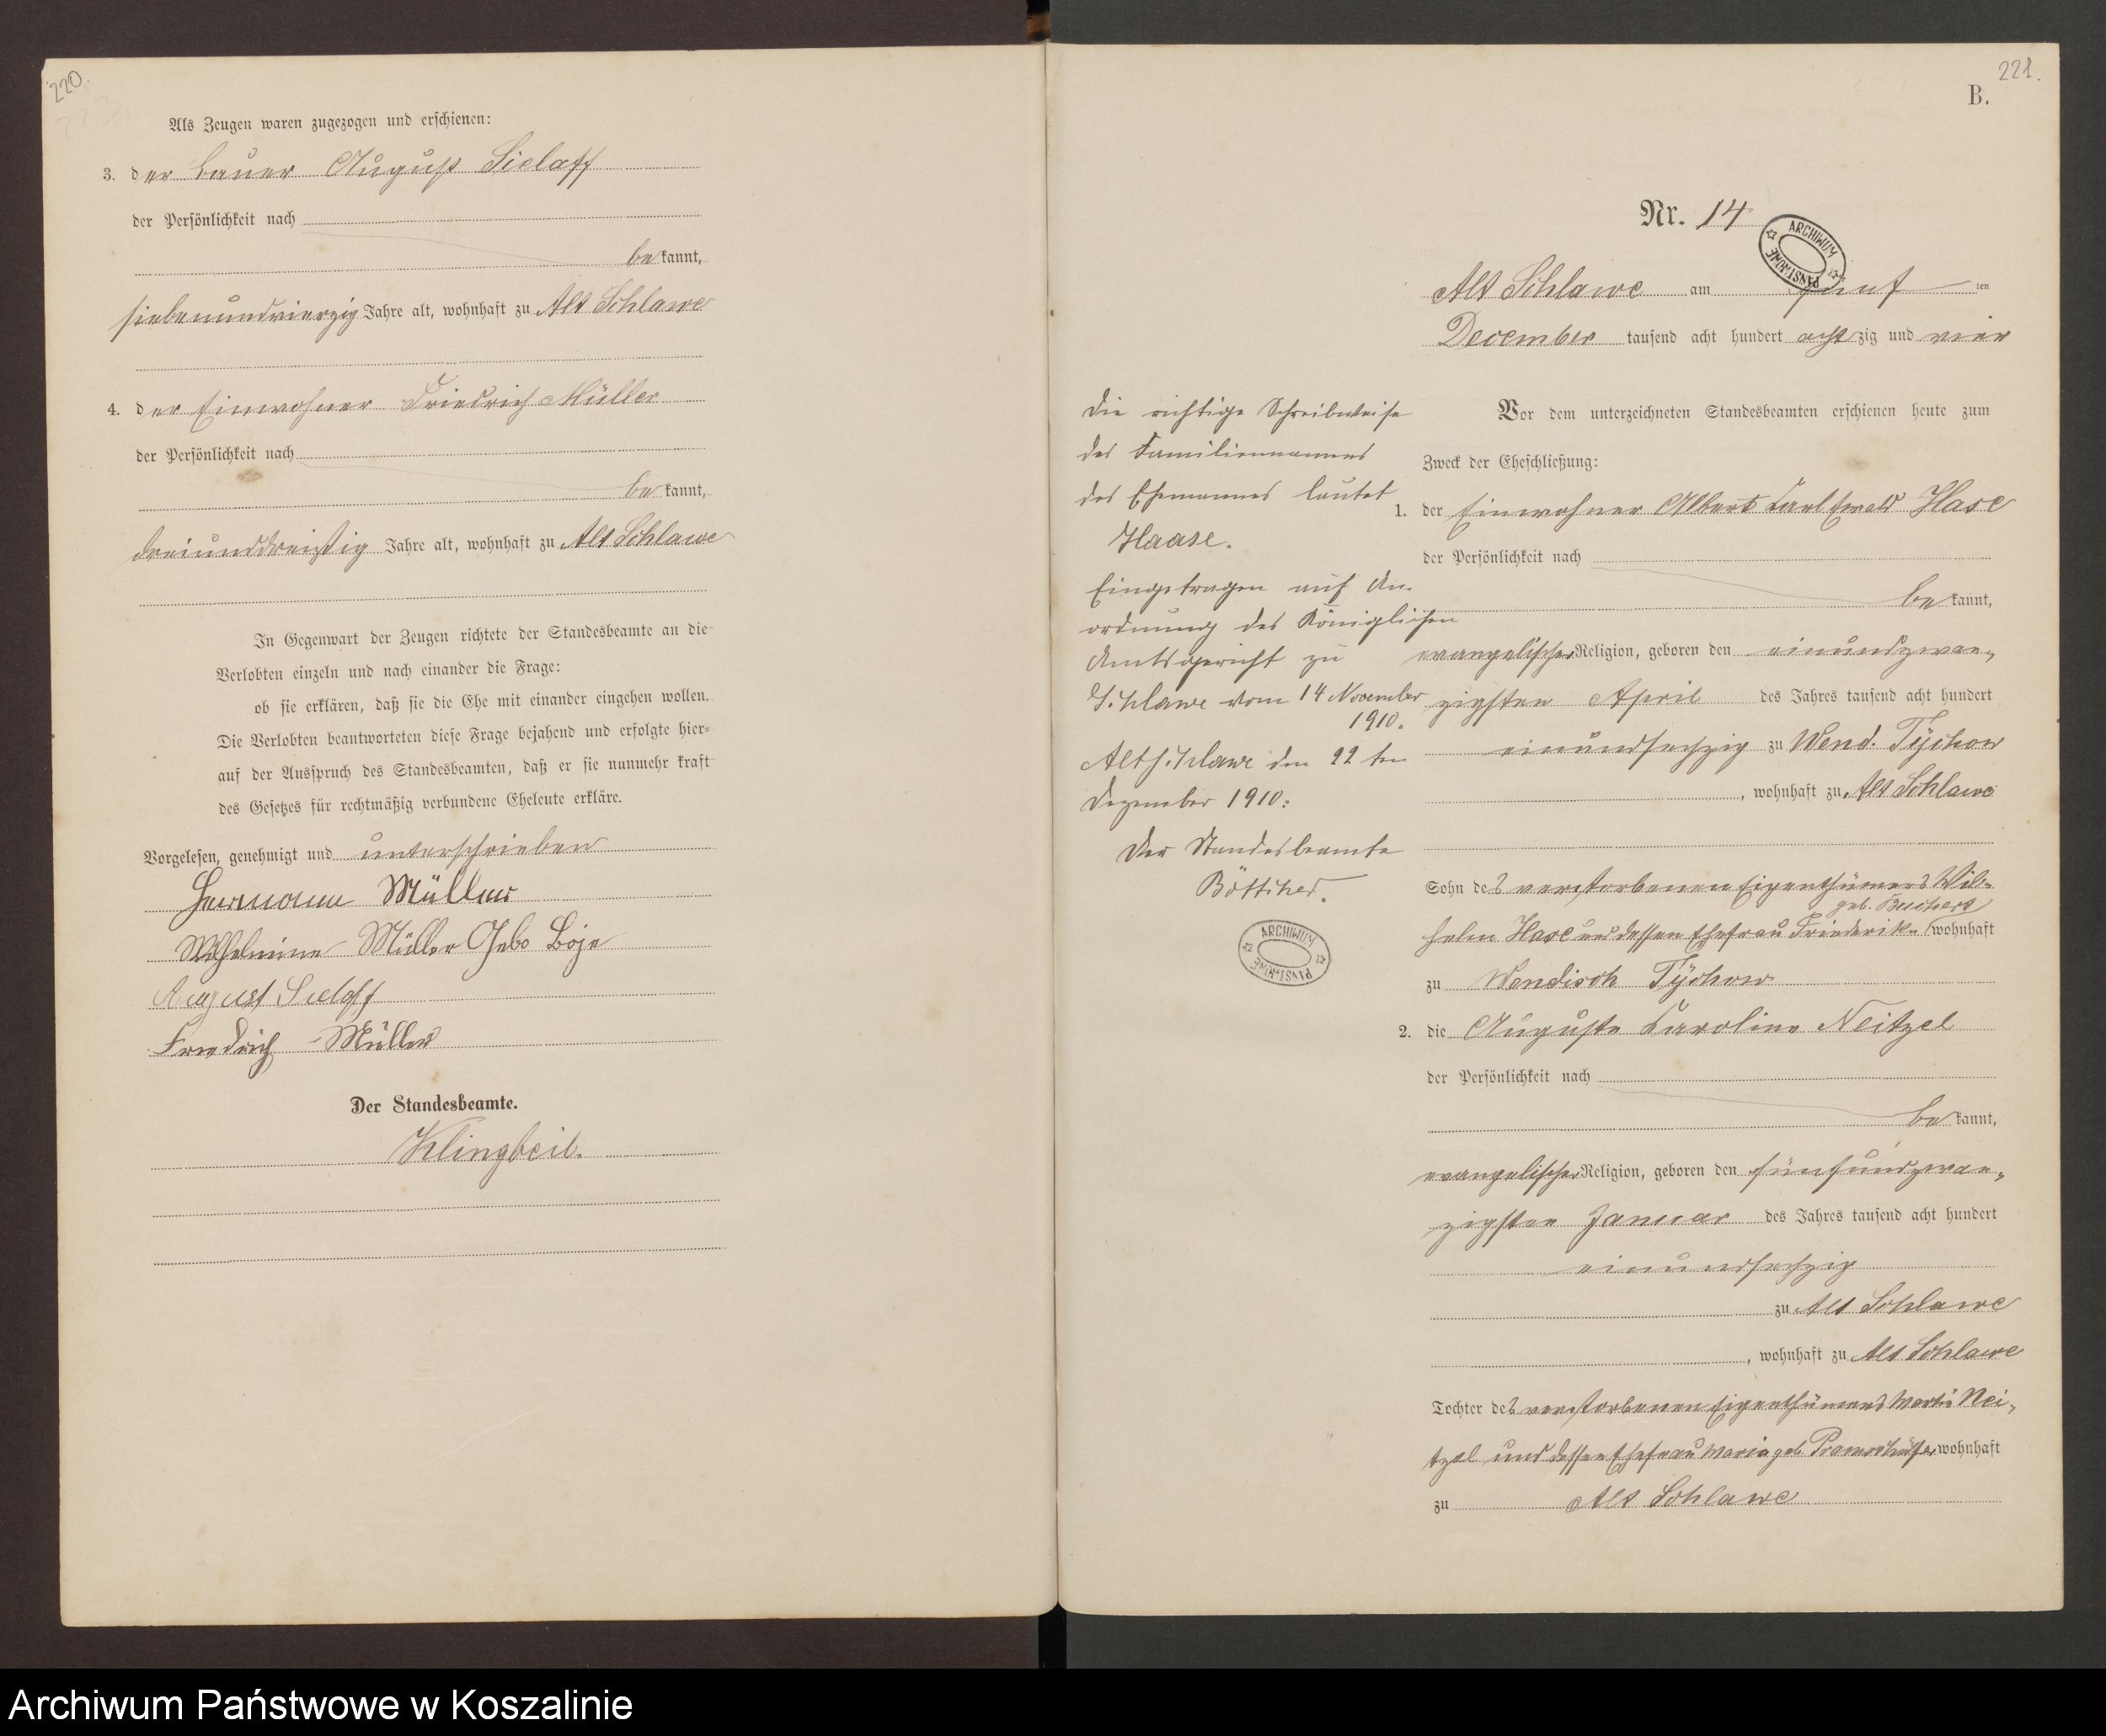 220.
Als Zeugen waren zugezogen und erschienen:
3. der Bauer August Sielaff
der Persönlichkeit nach
bekannt,
siebenundvierzig Jahre alt, wohnhaft zu Alt Schlawe
4. der Einwohner Friedrich Müller
der Persönlichkeit nach
bekannt,
dreiunddreißig Jahre alt, wohnhaft zu Alt Schlawe
In Gegenwart der Zeugen richtete der Standesbeamte an die
Verlobten einzeln und nach einander die Frage:
ob sie erklären, daß sie die Ehe mit einander eingehen wollen.
Die Verlobten beantworteten diese Frage bejahend und erfolgte hier=
auf der Ausspruch des Standesbeamten, daß er sie nunmehr kraft
des Gesetzes für rechtmäßig verbundene Eheleute erkläre.
Vorgelesen, genehmigt und unterschrieben
Hermann Müller
Wilhelmine Müller Gebo Boje
August Sielaff
Friedrich Müller
Der Standesbeamte.
Klingbeil.
221.
B.
Nr. 14
ARCHIWUM PAŃSTWOWE
Alt Schlawe am fünf ten
December tausend acht hundert achtzig und vier
Vor dem unterzeichneten Standesbeamten erschienen heute zum
Zweck der Eheschließung:
1. der Einwohner Albert Carl Ewald Hase
der Persönlichkeit nach
bekannt,
evangelischer Religion, geboren den einundzwan=
zigsten April des Jahres tausend acht hundert
einundsechzig zu Wend. Tychow
, wohnhaft zu Alt Schlawe
Sohn des verstorbenen Eigenthümers Wil=
geb.
helm Hase und dessen Ehefrau Friederike wohnhaft
zu Wendisch Tychow
2. die Auguste Caroline Neitzel
der Persönlichkeit nach
bekannt,
evangelischer Religion, geboren den fünfundzwan=
zigsten Januar des Jahres tausend acht hundert
einundsechzig
zu Alt Schlawe
, wohnhaft zu Alt Schlawe
Tochter des verstorbenen Eigenthümers Martin Nei=
tzel und dessen Ehefrau Maria geb. wohnhaft
zu Alt Schlawe
Die richtige Schreibweise
des Familiennamens
des Ehemannes lautet
Haase.
Eingetragen auf An=
ordnung des Königlichen
Amtsgericht zu
Schlawe vom 14 November
1910.
Altschlawe den 22 ten
Dezember 1910:
Der Standesbeamte
Böttcher.
ARCHIWUM PAŃSTWOWE
Archiwum Państwowe w Koszalinie